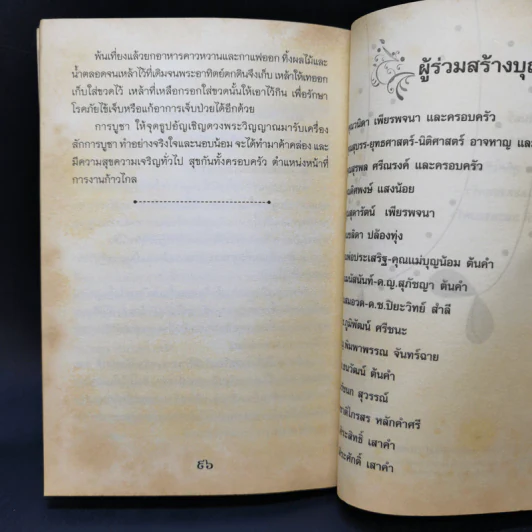 พ้นเที่ยงแล้วยกอาหารคาวหวานและกาแฟออก ทิ้งผลไม้และ
น้ำตลอดจนเหล้าไว้ที่เดิมจนพระอาทิตย์ตกดินจึงเก็บ เหล้าให้เทออก
เก็บใส่ขวดไว้ เหล้าที่เหลือกรอกใส่ขวดนั้นให้เอาไว้กิน เพื่อรักษา
โรคภัยไข้เจ็บหรือแก้อาการเจ็บป่วยได้อีกด้วย
การบูชา ให้จุดธูปอัญเชิญดวงพระวิญญาณมารับเครื่อง
สักการบูชา ทำอย่างจริงใจและนอบน้อม จะได้ทำมาค้าคล่อง และ
มีความสุขความเจริญทั่วไป สุขกันทั้งครอบครัว ตำแหน่งหน้าที่
การงานก้าวไกล
๕๖
ผู้ร่วมสร้างบุญ
เพียรพจนา และครอบครัว
ยุทธศาสตร์-นิติศาสตร์ อาจหาญ
ศรีณรงค์ และครอบครัว
แสงน้อย
เพียรพจนา
ปล้องทุ่ง
คุณแม่บุญน้อม ต้นคำ
ด.ญ.สุภัชญา ต้นคำ
ด.ช.ปิยะวิทย์ สำลี
ศรีชนะ
พิมพาพรรณ จันทร์ฉาย
ต้นคำ
สุวรรณ์
หลักคำศรี
เสาคำ
เสาคำ